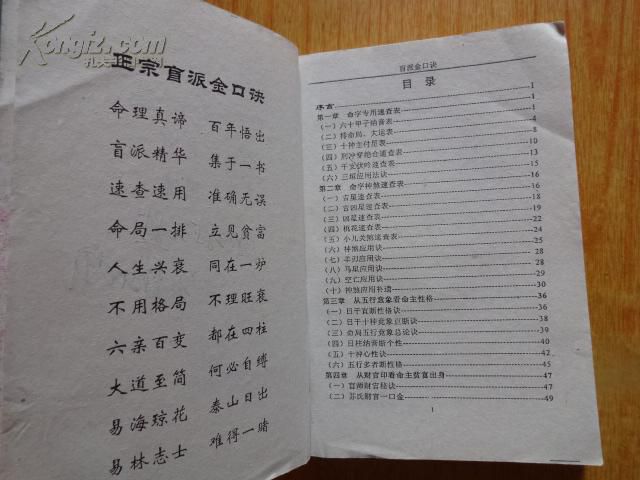 Kongfz.com
孔夫子旧书网
正宗盲派金口诀
命理真谛 百年悟出
盲派精华 集于一书
速查速用 准确无误
命局一排 立见贫富
人生兴衰 同在一炉
不用格局 不理旺衰
六亲百变 都在四柱
大道至简 何必自缚
易海琼花 泰山日出
易林志士 难得一睹
盲派金口诀
目录
序言 1
第一章 命字专用速查表 1
(一)六十甲子纳音表 1
(二)排命局、大运表 3
(三)十神生付星表 10
(四)刑冲穿绝合速查表 13
(五)干支伏吟速查表 15
(六)三垣应用法诀 16
第二章 命字神煞速查表 16
(一)吉星速查表 16
(二)吉凶星速查表 19
(三)凶星速查表 22
(四)桃花速查表 24
(五)小儿关煞速查表 25
(六)神煞应用诀 28
(七)羊刃应用诀 28
(八)马星应用诀 28
(九)空亡应用诀 29
(十)神煞应用补遗 30
第三章 从五行意象看命主性格 36
(一)日干直断性格诀 36
(二)日干十神意象直断诀 38
(三)命局五行意象总论诀 39
(四)日柱纳音断个性 40
(五)十神心性诀 42
(六)五行多者断性格 45
第四章 从财官印看命主贫富出身 47
(一)盲师财官秘诀 47
(二)苏氏财官一口金 49
1